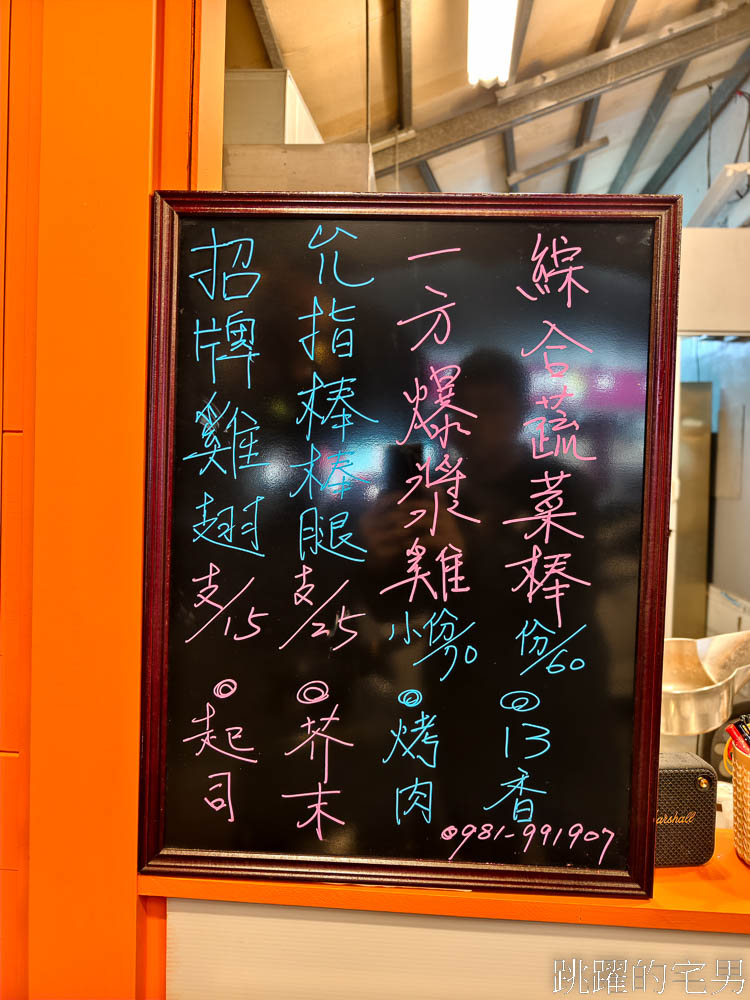 綜合蔬菜棒 份/60 ◎13香
一方爆漿雞 小份/70 ◎烤肉
允指棒棒腿 支/25 ◎芥末
招牌雞翅 支/15 ◎起司
0981-991907
Marshall
跳躍的宅男